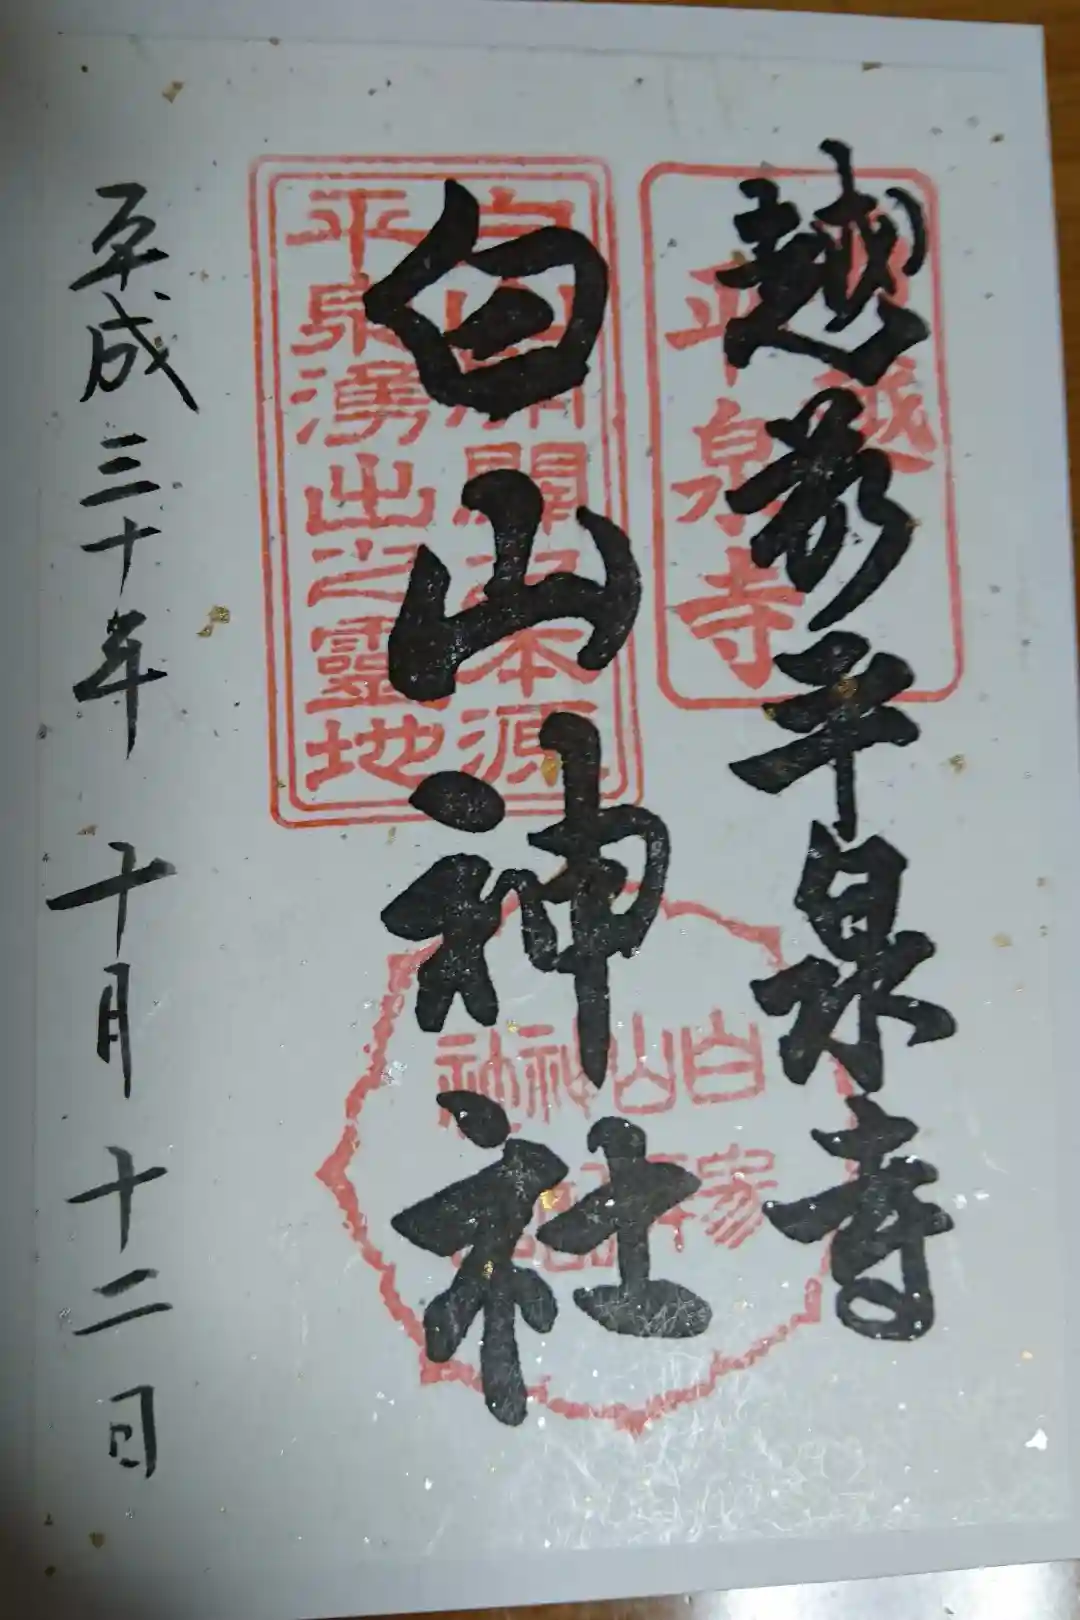 越前平泉寺
越
平泉寺
白山神社
白山開闢之本源
平泉湧出之靈地
白山神社
平成三十年 十月 十二日